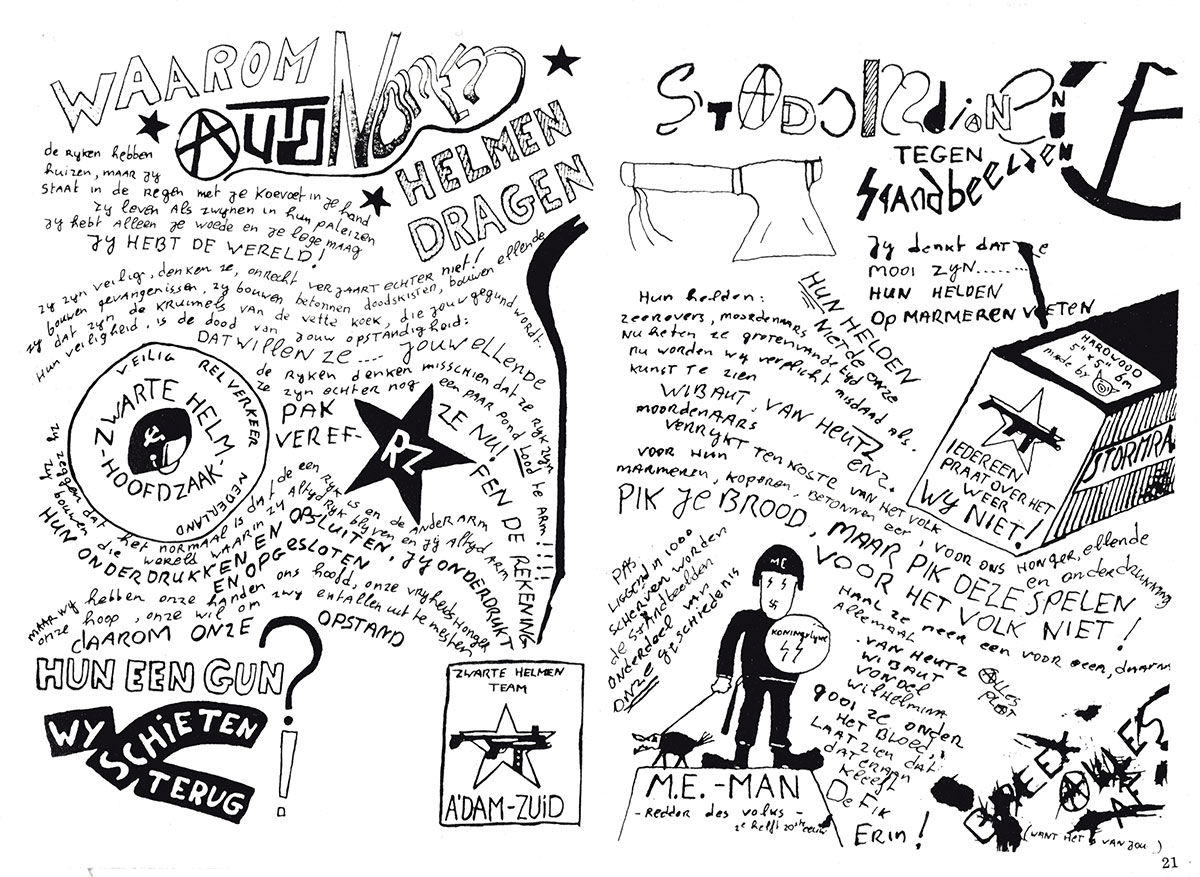 WAAROM
AUTONOMEN
HELMEN
DRAGEN
de Ryken hebben
huizen, maar jy
staat in de regen met je koevoet in je hand
zy leven als zwynen in hun paleizen
jy hebt alleen je woede en je lege maag
JY HEBT DE WERELD!
zy zyn veilig, denken ze, onrecht verjaart echter niet!
zy bouwen gevangenissen, zy bouwen betonnen doodskisten, bouwen ellende
zy dat zyn de kruimels van de vette koek, die jouw gegund wordt.
Hun veiligheid, is de dood van jouw opstandigheid:
DAT WILLEN ZE.... JOUW ELLENDE
de RYKEN denken misschien dat ze RYK zyn
ze zyn echter nog een paar pond Lood te ARM!!!!
PAK ZE NU!
VEREFFEN DE REKENING
RZ
VEILIG RELVERKEER NEDERLAND
ZWARTE HELM
-HOOFDZAAK-
zy zeggen dat het normaal is dat de een ryk is en de ander arm
zy bouwen die wereld waar in zy Altyd Ryk blyven en jy Altyd Arm
HUN ONDERDRUKKEN EN OPSLUITEN, JY ONDERDRUKT
EN OPGESLOTEN
MAAR wy hebben onze handen ons hoofd, onze vryheidshonger
onze hoop, onze wil om
daarom onze OPSTAND
HUN EEN GUN?
WY SCHIETEN
TERUG!
ZWARTE HELMEN
TEAM
A'DAM-ZUID
STADSINDIANEN
TEGEN
STANDBEELDEN
Jy denkt dat ze
MOOI ZYN.......
HUN HELDEN
OP MARMEREN VOETEN
Hun helden:
zeerovers, moordenaars
Nu heten ze groten van de tyd
nu worden wy verplicht misdaad als
kunst te zien
HUN HELDEN
niet de onze
WIBAUT, VAN HEUTZ enz.
moordenaars
VERRYKT TEN KOSTE VAN HET VOLK
VOOR HUN
MARMEREN, KOPEREN, BETONNEN eer, voor ons HONGER, ellende
en onderdrukking
PIK JE BROOD, MAAR PIK DEZE SPELEN
VOOR HET VOLK NIET!
HARDWOOD
5" x 5" 6m
made by
IEDEREEN
PRAAT OVER HET
WEER
WY NIET!
STORMRA
PAS,
LIGGEND in 1000
scherven worden
de standbeelden
onderdeel van
ONZE geschiedenis
ME
KONINGLYKE
M.E.-MAN
- Redder des volks -
2e helft 20ste eeuw
HAAL ze neer een voor een, daarom
Allemaal
- VAN HEUTZ
WIBAUT
VONDEL
WILHELMINA
ALLES
PLAT
gooi ze onder
HET BLOED,
LAAT ZIEN DAT
DAT ERAAN
KLEEFT
De Fik
Erin!
BREEK
ALLES
AF
(WANT HET IS VAN JOU)
21